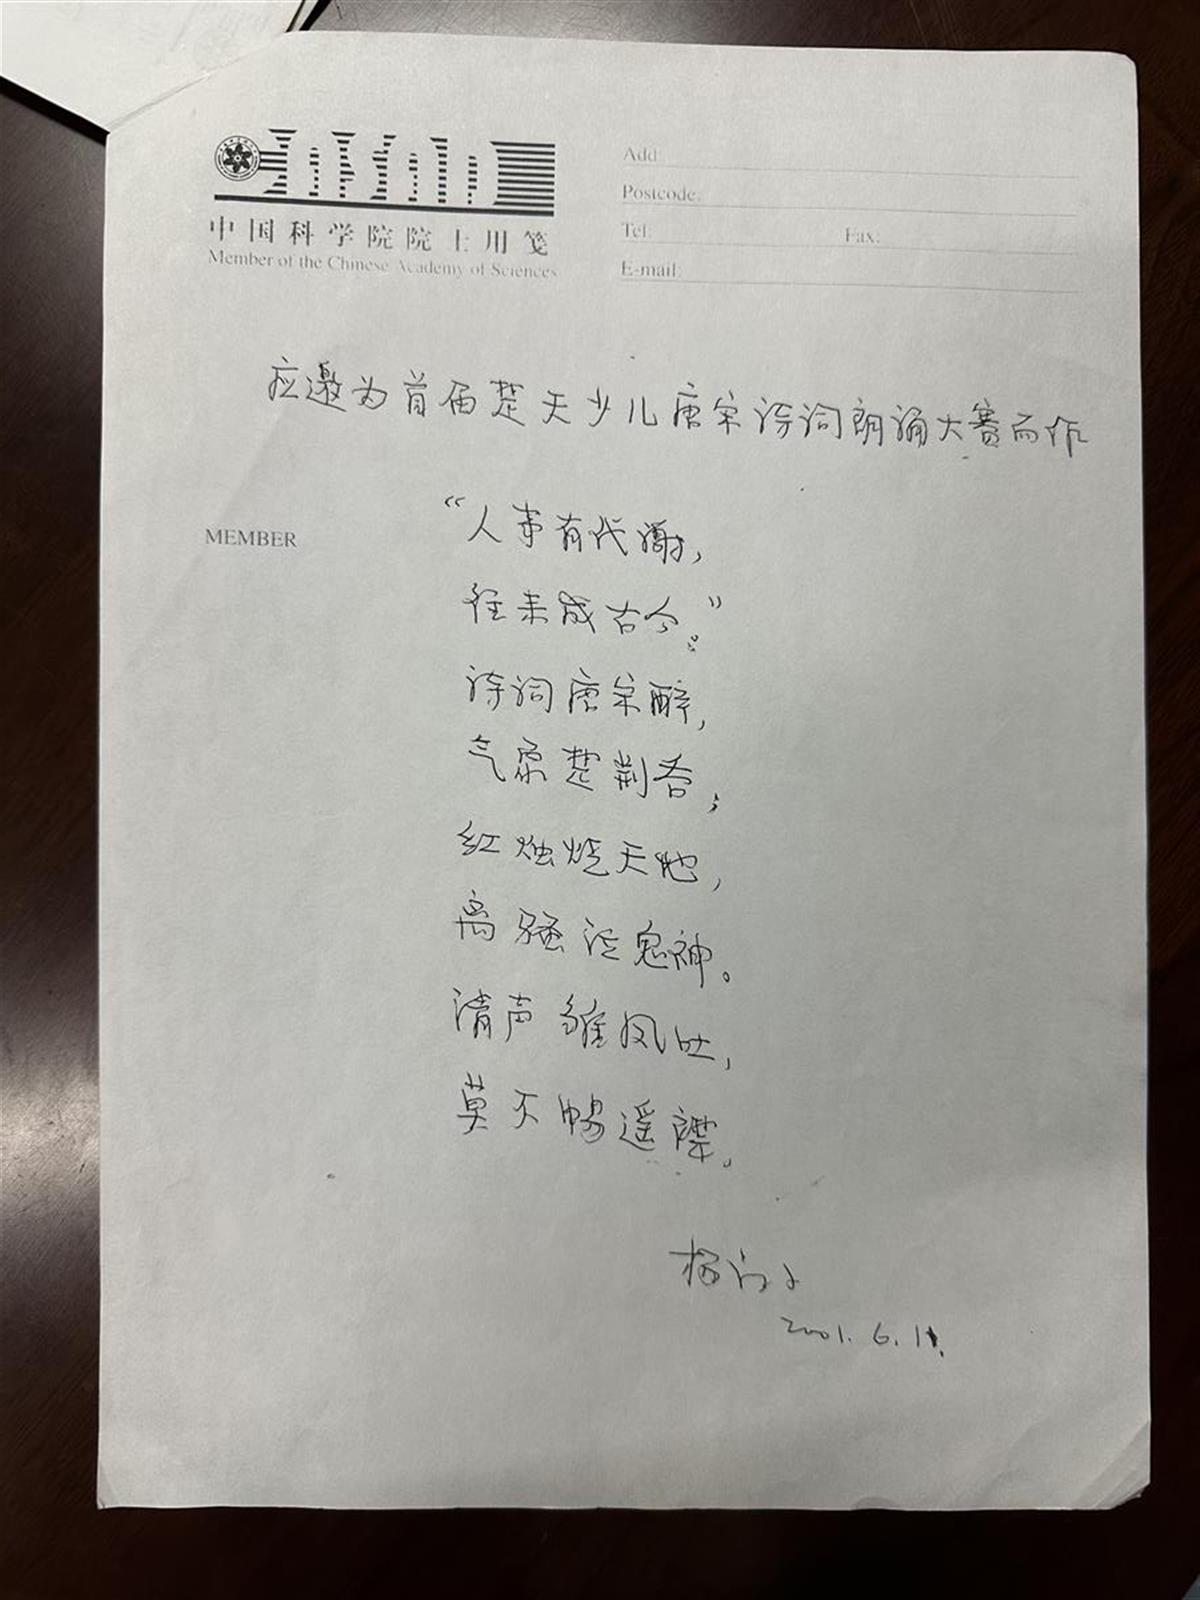 中国科学院院士用笺
Member of the Chinese Academy of Sciences
Add:
Postcode:
Tel: Fax:
E-mail:
应邀为首届楚天少儿唐宋诗词朗诵大赛而作
MEMBER
“人事有代谢,
往来成古今。”
诗词唐宋醉,
气质楚荆吞;
红烛烧天地,
离骚泣鬼神。
清声雏凤吐,
莫不畅遥襟。
杨
2001.6.11.